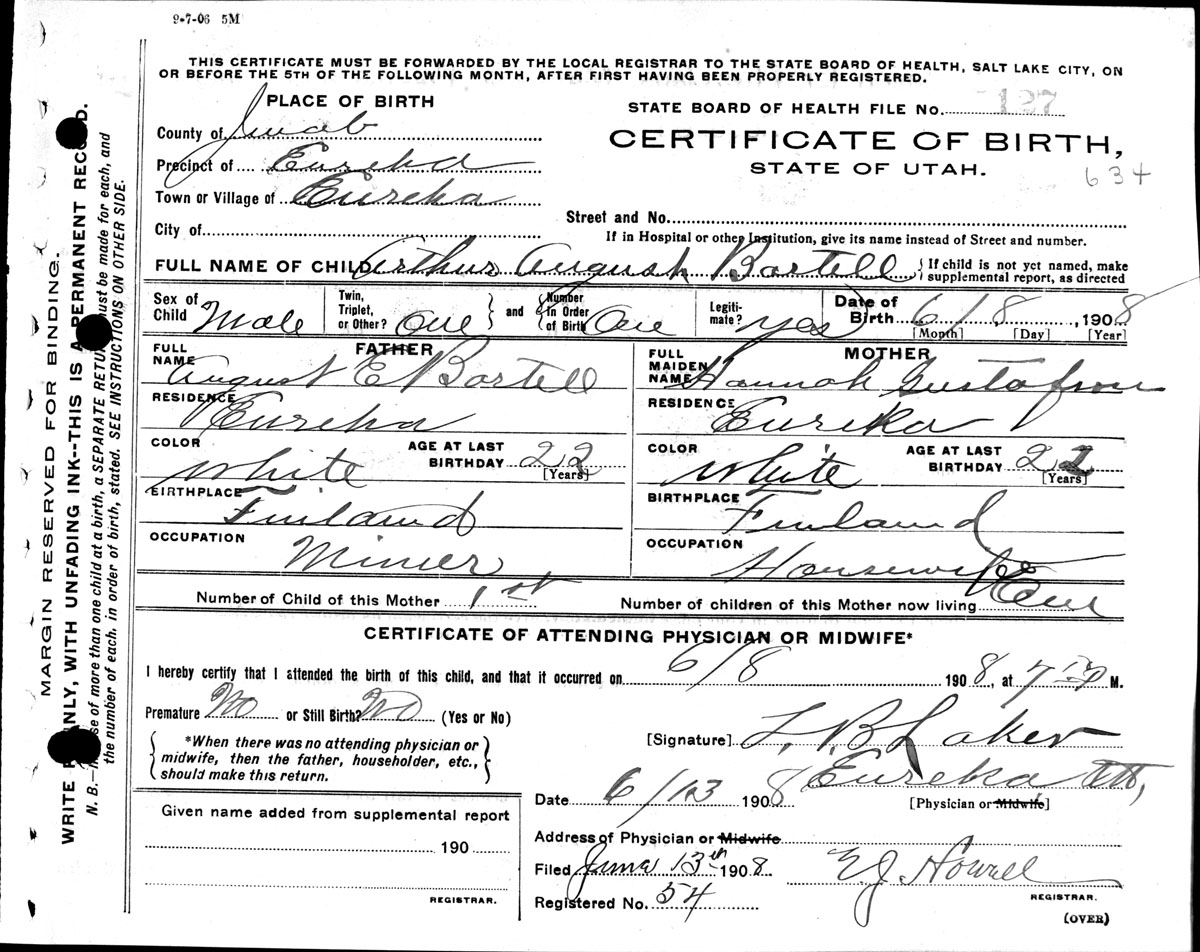 9-7-06 5M
THIS CERTIFICATE MUST BE FORWARDED BY THE LOCAL REGISTRAR TO THE STATE BOARD OF HEALTH, SALT LAKE CITY, ON
OR BEFORE THE 5TH OF THE FOLLOWING MONTH, AFTER FIRST HAVING BEEN PROPERLY REGISTERED.
PLACE OF BIRTH
STATE BOARD OF HEALTH FILE No. 127
County of Juab
CERTIFICATE OF BIRTH,
Precinct of Eureka
STATE OF UTAH.
634
Town or Village of Eureka
Street and No.
City of
If in Hospital or other Institution, give its name instead of Street and number.
FULL NAME OF CHILD Arthur August Bartell { If child is not yet named, make
supplemental report, as directed
Sex of Child Male
Twin, Triplet, or Other? One } and { Number In Order of Birth One
Legiti-mate? yes
Date of Birth 6/8, 1908
[Month] [Day] [Year]
FATHER
FULL NAME August E Bartell
RESIDENCE Eureka
COLOR White AGE AT LAST BIRTHDAY 22 [Years]
BIRTHPLACE Finland
OCCUPATION Miner
MOTHER
FULL MAIDEN NAME Hannah Gustafson
RESIDENCE Eureka
COLOR White AGE AT LAST BIRTHDAY 22 [Years]
BIRTHPLACE Finland
OCCUPATION Housewife
Number of Child of this Mother 1st
Number of children of this Mother now living One
CERTIFICATE OF ATTENDING PHYSICIAN OR MIDWIFE*
I hereby certify that I attended the birth of this child, and that it occurred on 6/8 1908, at 7 30 M.
Premature No or Still Birth? No (Yes or No)
{ *When there was no attending physician or
midwife, then the father, householder, etc.,
should make this return. }
[Signature] L. B. Laker
Eureka Ut,
Date 6/13 1908
[Physician or Midwife]
Given name added from supplemental report
190
REGISTRAR.
Address of Physician or Midwife
Filed June 13th 1908
E J. Howell
REGISTRAR.
Registered No. 54
(OVER)
MARGIN RESERVED FOR BINDING.
WRITE PLAINLY, WITH UNFADING INK--THIS IS A PERMANENT RECORD.
N. B.—In case of more than one child at a birth, a SEPARATE RETURN must be made for each, and
the number of each, in order of birth, stated. SEE INSTRUCTIONS ON OTHER SIDE.